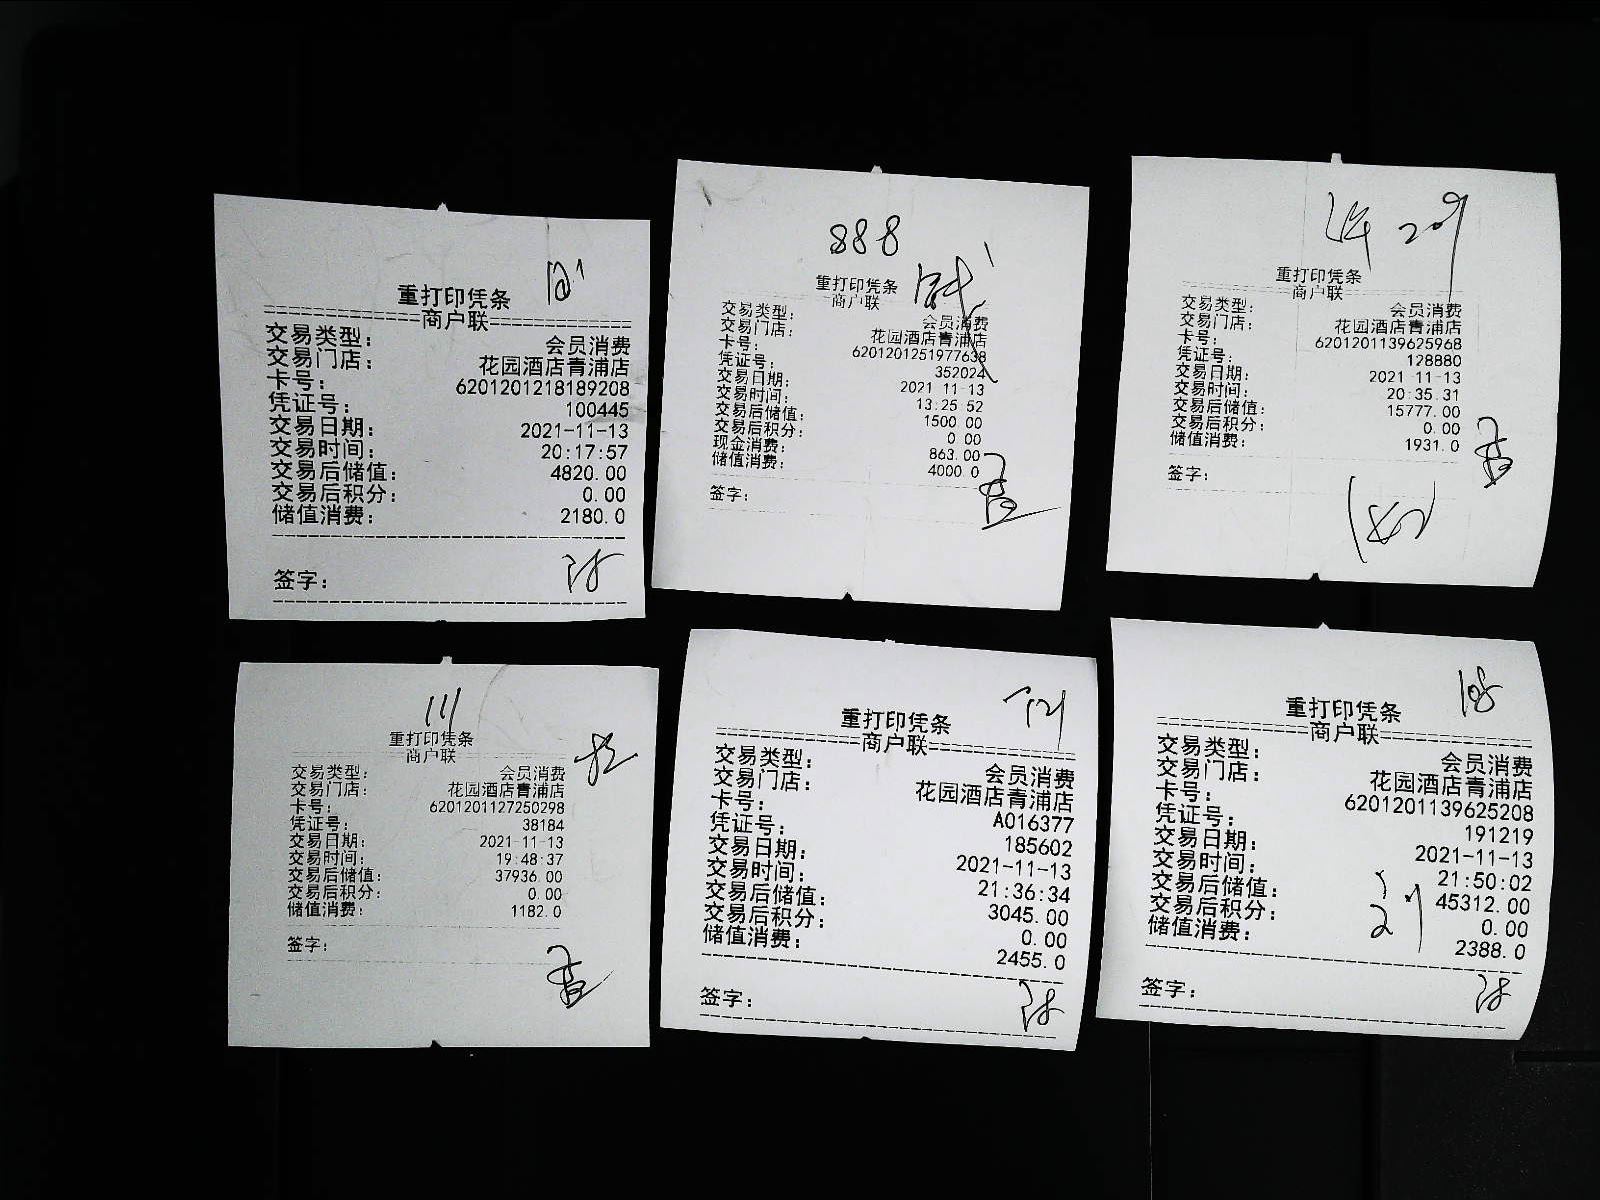 重打印凭条
==========商户联==========
交易类型: 会员消费
交易门店: 花园酒店青浦店
卡号: 6201201218189208
凭证号: 100445
交易日期: 2021-11-13
交易时间: 20:17:57
交易后储值: 4820.00
交易后积分: 0.00
储值消费: 2180.0
签字:
888
重打印凭条
商户联
交易类型: 会员消费
交易门店: 花园酒店青浦店
卡号: 6201201251977638
凭证号: 352024
交易日期: 2021-11-13
交易时间: 13:25:52
交易后储值: 1500.00
交易后积分: 0.00
现金消费: 863.00
储值消费: 4000.0
签字:
重打印凭条
商户联
交易类型: 会员消费
交易门店: 花园酒店青浦店
卡号: 6201201139625968
凭证号: 128880
交易日期: 2021-11-13
交易时间: 20:35:31
交易后储值: 15777.00
交易后积分: 0.00
储值消费: 1931.0
签字:
111
重打印凭条
商户联
交易类型: 会员消费
交易门店: 花园酒店青浦店
卡号: 6201201127250298
凭证号: 38184
交易日期: 2021-11-13
交易时间: 19:48:37
交易后储值: 37936.00
交易后积分: 0.00
储值消费: 1182.0
签字:
重打印凭条
==========商户联==========
交易类型: 会员消费
交易门店: 花园酒店青浦店
卡号: A016377
凭证号: 185602
交易日期: 2021-11-13
交易时间: 21:36:34
交易后储值: 3045.00
交易后积分: 0.00
储值消费: 2455.0
签字:
重打印凭条
==========商户联==========
交易类型: 会员消费
交易门店: 花园酒店青浦店
卡号: 6201201139625208
凭证号: 191219
交易日期: 2021-11-13
交易时间: 21:50:02
交易后储值: 45312.00
交易后积分: 0.00
储值消费: 2388.0
签字: